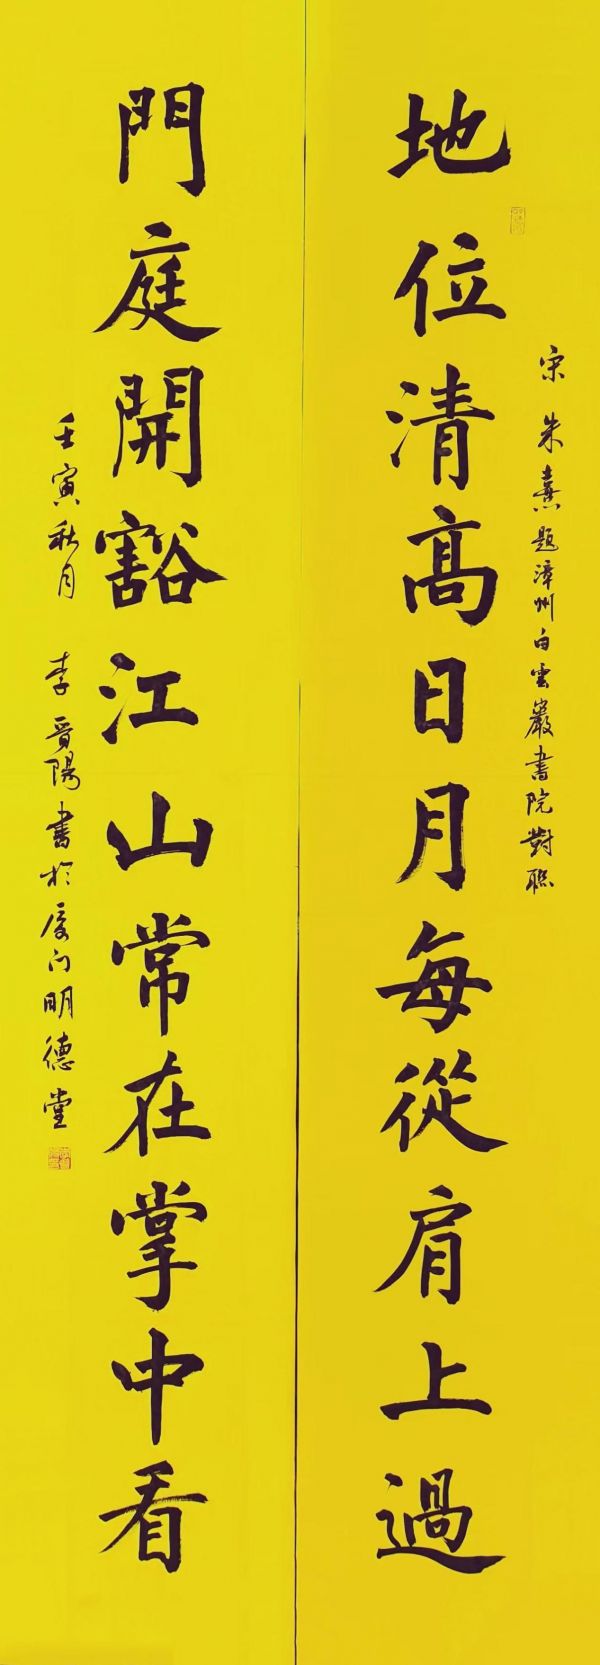 地位清高日月每從肩上過
宋 朱熹題漳州白雲巖書院對聯
門庭開豁江山常在掌中看
壬寅秋月 李晉陽書於厦门明德堂